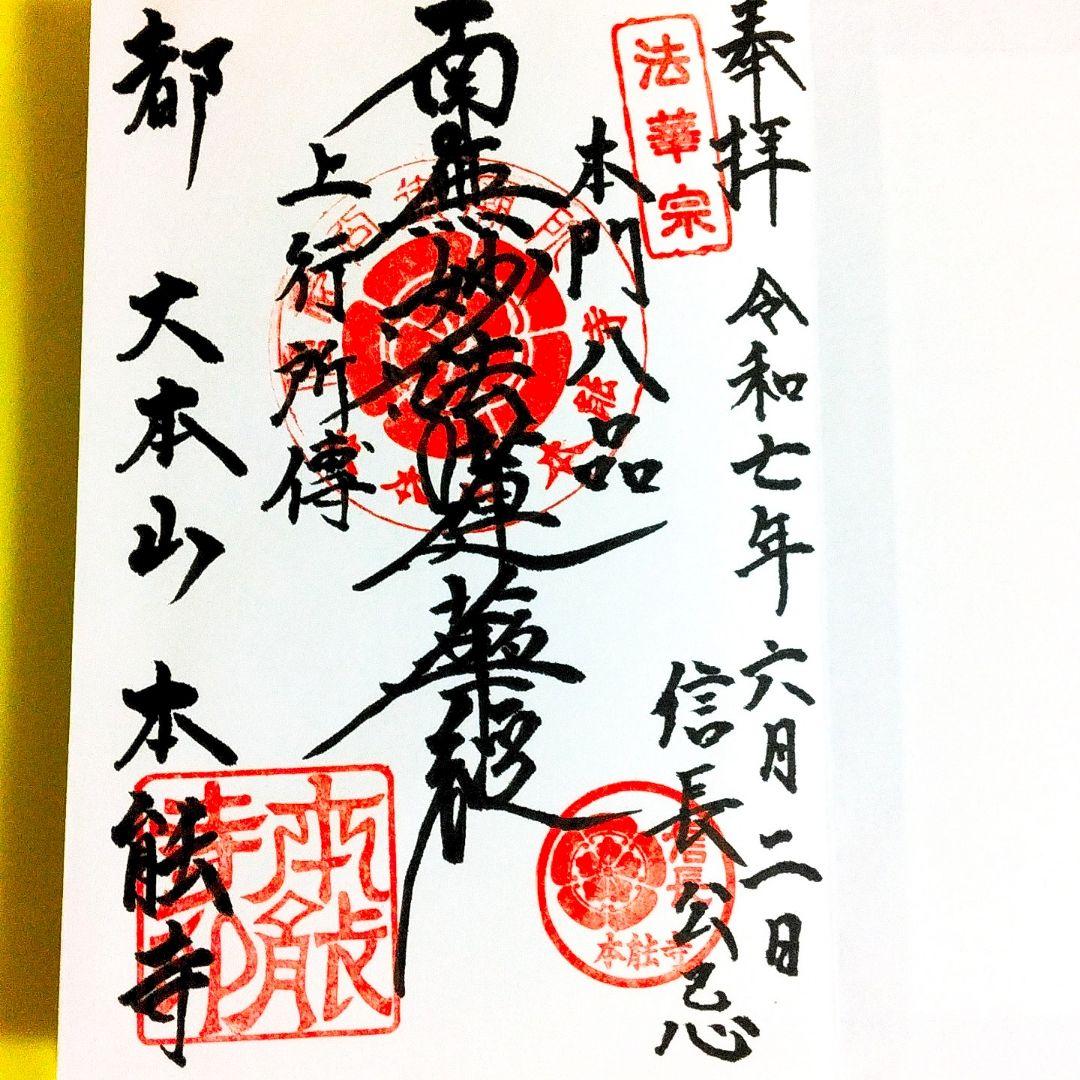 奉拝
令和七年六月二日
信長公忌
法華宗
本門八品
南無妙法蓮華経
上行所傳
都 大本山 本能寺
本能寺